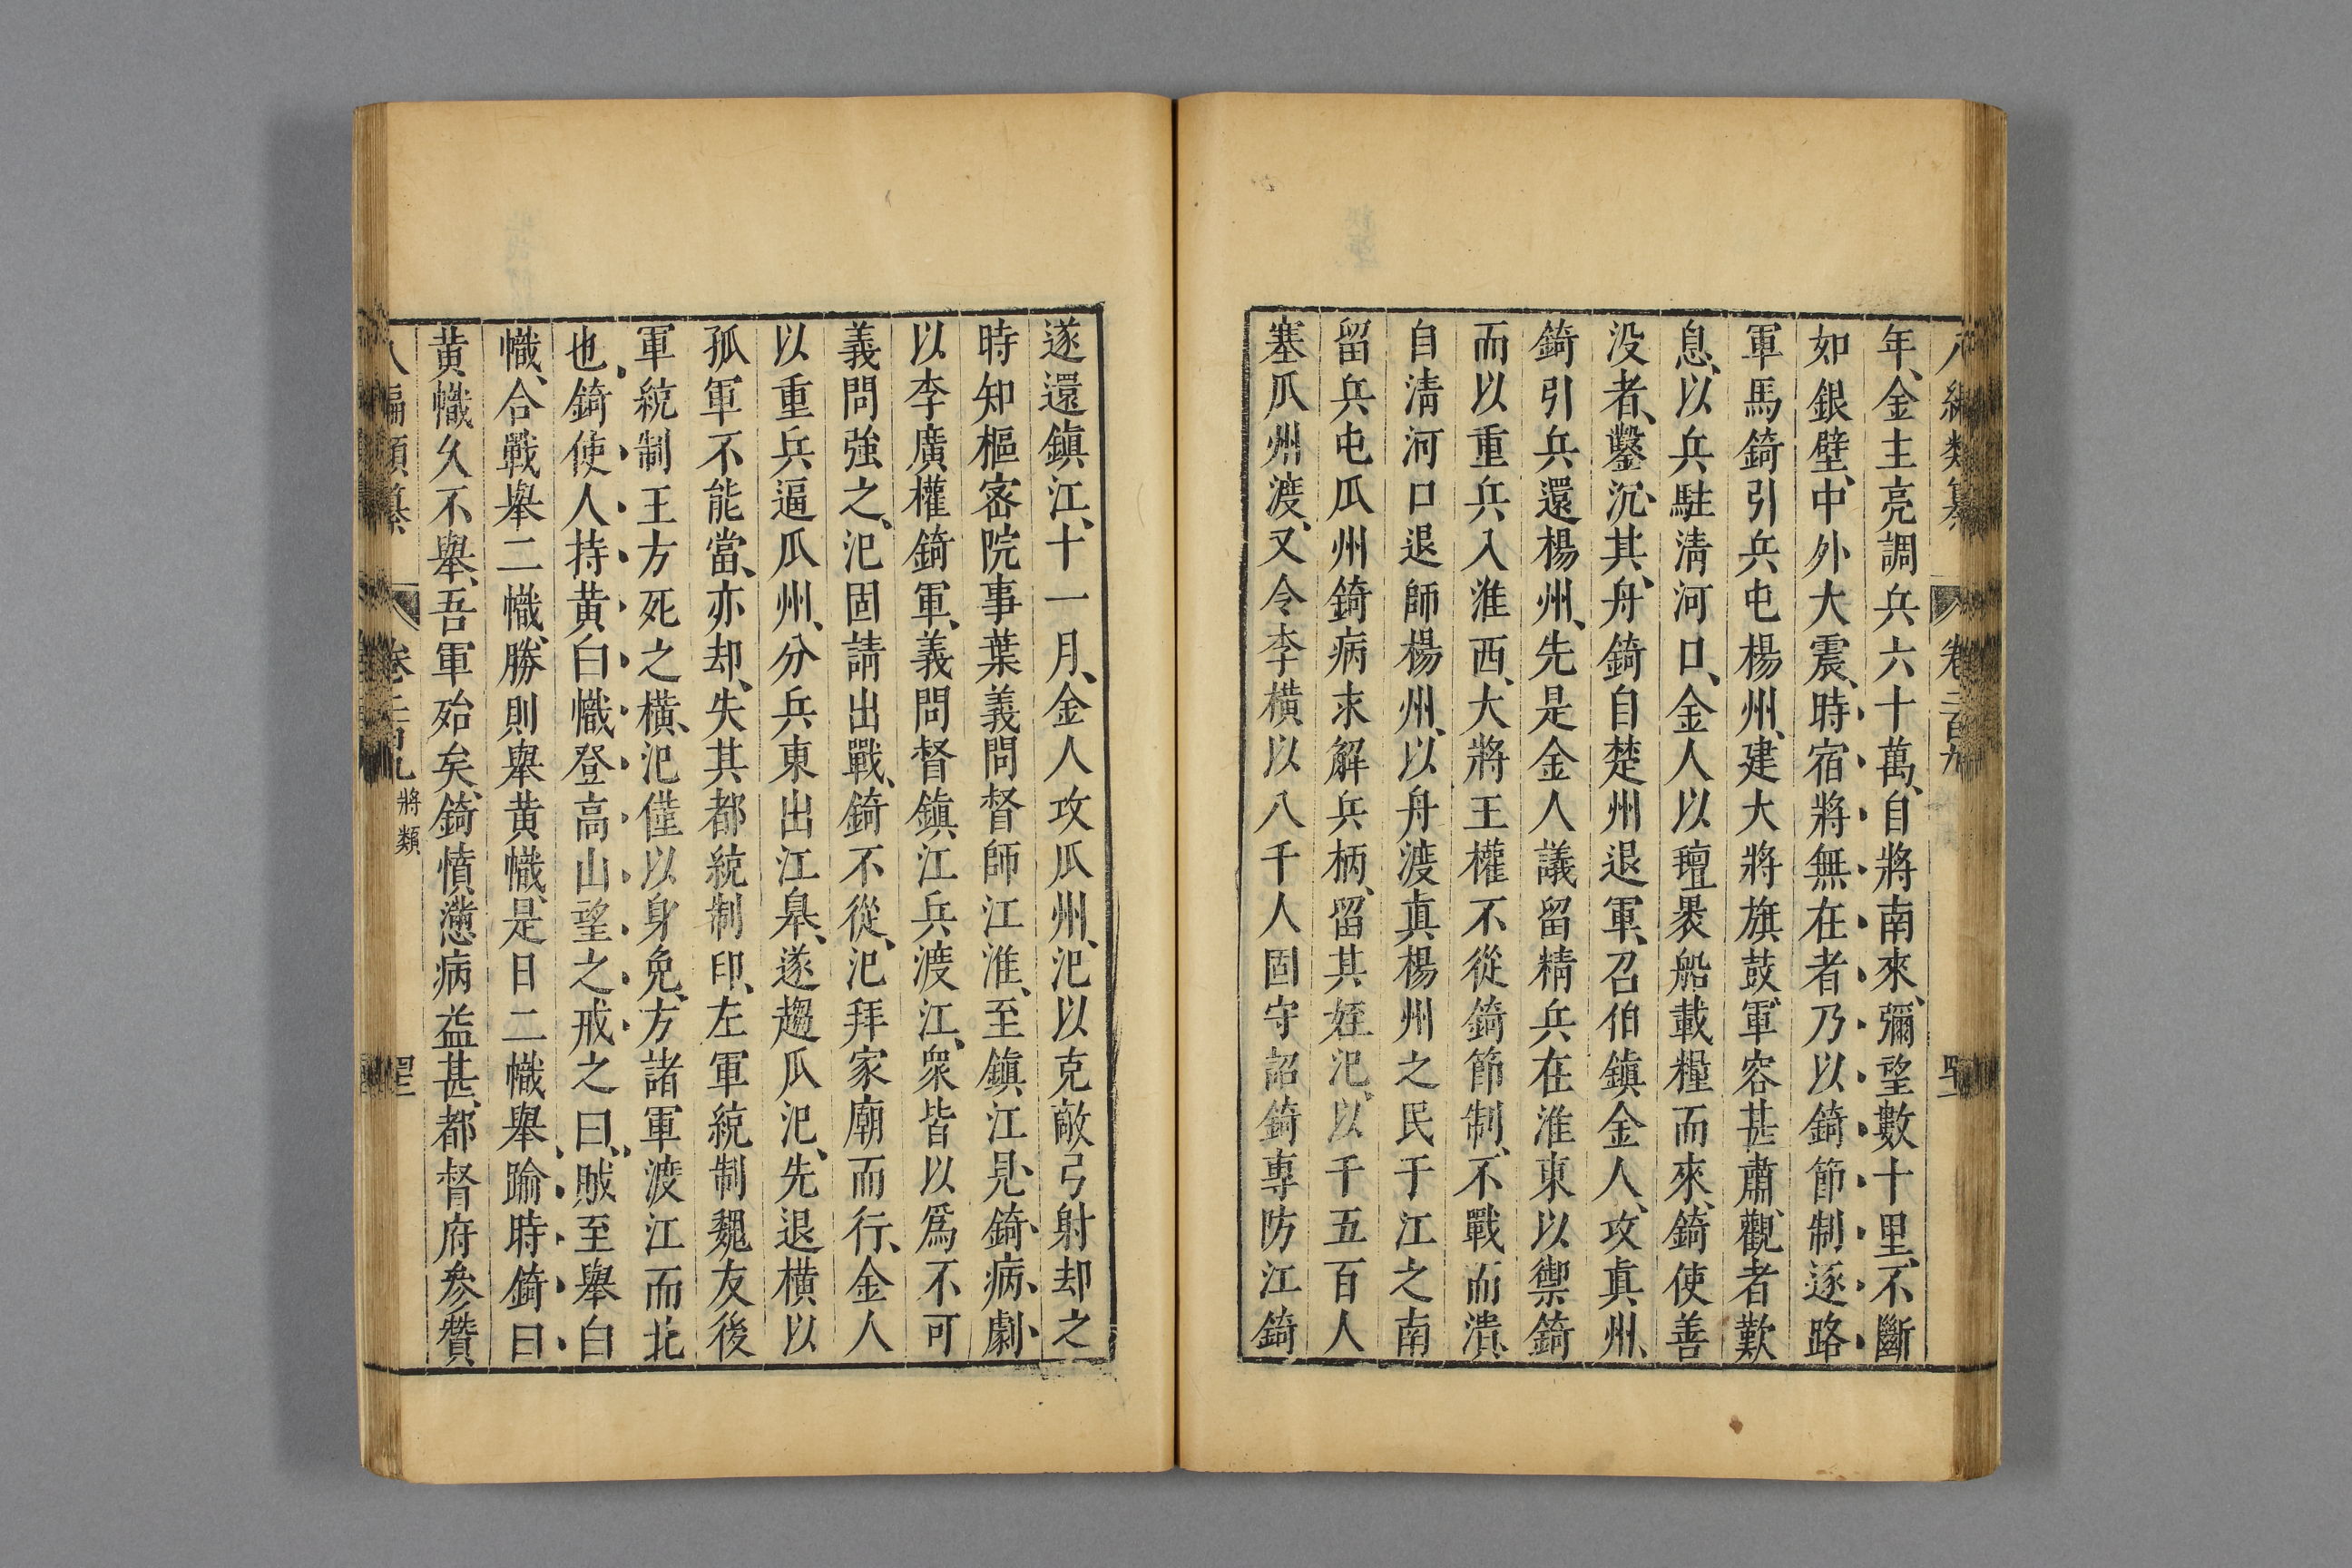 八編類纂 卷二百九
年、金主亮調兵六十萬、自將南來、彌望數十里、不斷
如銀壁、中外大震、時宿將無在者乃以錡節制逐路
軍馬錡引兵屯楊州、建大將旗鼓、軍容甚肅、觀者歎
息、以兵駐淸河口、金人以氊裹船載糧而來、錡使善
没者、鑿沉其舟錡自楚州退軍、召伯鎮金人、攻眞州、
錡引兵還楊州、先是金人議留精兵在淮東以禦錡
而以重兵入淮西、大將王權不從錡節制、不戰而潰、
自淸河口退師楊州、以舟渡眞楊州之民于江之南
留兵屯瓜州錡病求解兵柄、留其姪汜、以千五百人
塞瓜州渡、又令李横以八千人固守詔錡專防江錡
遂還鎮江、十一月、金人攻瓜州、汜以克敵弓射却之
時知樞密院事葉義問督師江淮、至鎮江、見錡病劇
以李廣權錡軍、義問督鎮江兵渡江、衆皆以爲不可
義問強之、汜固請出戰、錡不從、汜拜家廟而行、金人
以重兵逼瓜州、分兵東出江皐、遂趨瓜汜、先退横以
孤軍不能當、亦却、失其都統制印、左軍統制魏友後
軍統制王方死之横、汜僅以身免、方諸軍渡江而北
也、錡使人持黄白幟登高山望之戒之曰、賊至舉白
幟、合戰舉二幟、勝則舉黄幟、是日二幟舉、踰時錡曰
黄幟久不舉、吾軍殆矣、錡憤懣病益甚、都督府叅贊
八編類纂 卷二百九 將類